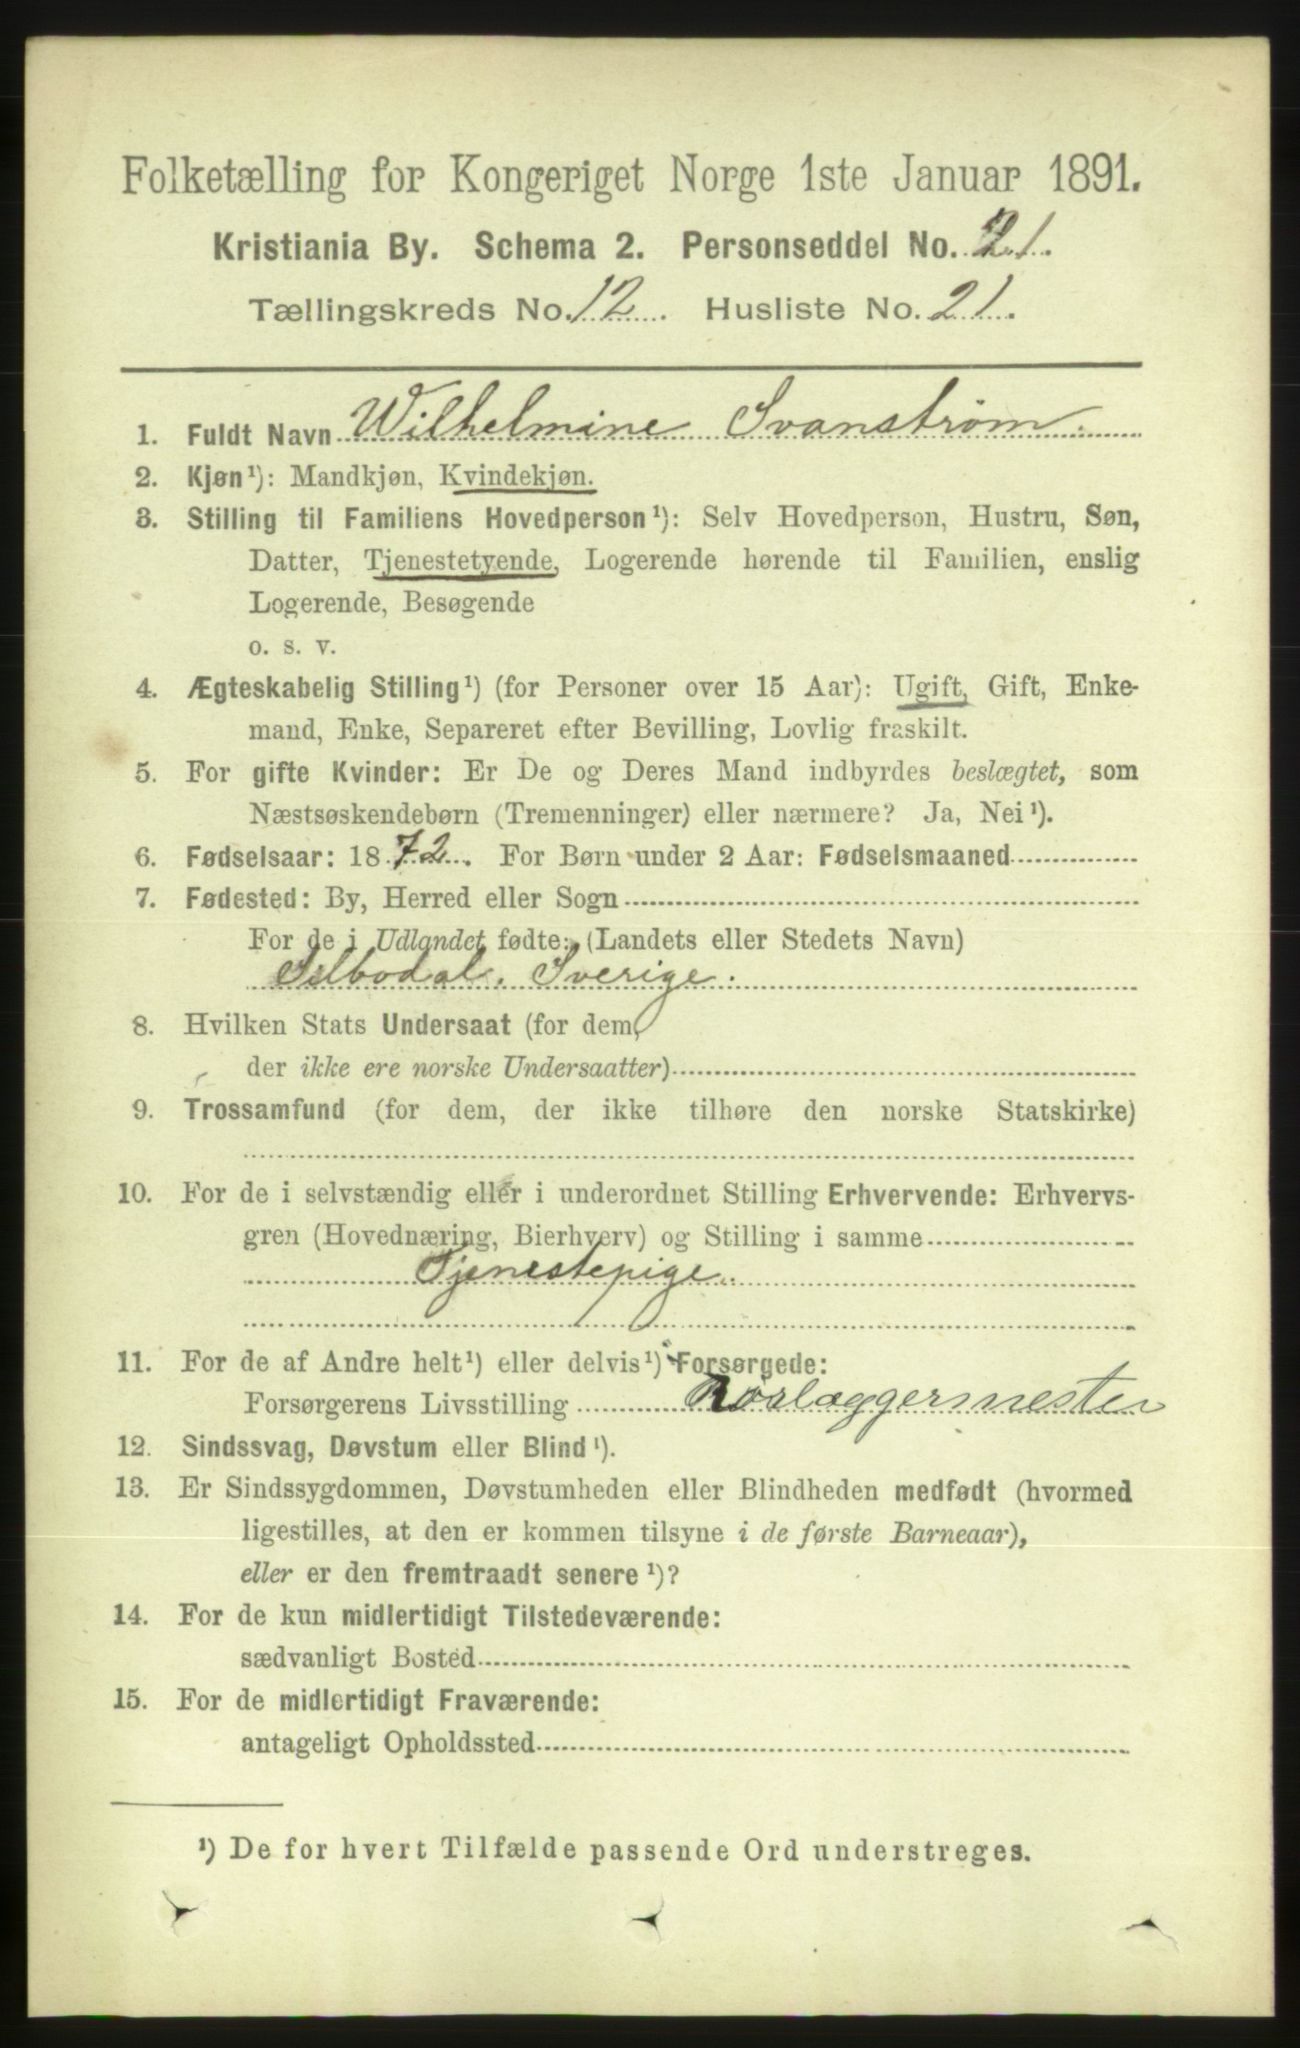 Folketælling for Kongeriget Norge 1ste Januar 1891.
Kristiania By. Schema 2. Personseddel No. 21.
Tællingskreds No. 12. Husliste No. 21.
1. Fuldt Navn Wilhelmine Svanstrøm.
2. Kjøn¹): Mandkjøn, Kvindekjøn.
3. Stilling til Familiens Hovedperson¹): Selv Hovedperson, Hustru, Søn,
Datter, Tjenestetyende, Logerende hørende til Familien, enslig
Logerende, Besøgende
o. s. v.
4. Ægteskabelig Stilling¹) (for Personer over 15 Aar): Ugift, Gift, Enke-
mand, Enke, Separeret efter Bevilling, Lovlig fraskilt.
5. For gifte Kvinder: Er De og Deres Mand indbyrdes beslægtet, som
Næstsøskendebørn (Tremenninger) eller nærmere? Ja, Nei¹).
6. Fødselsaar: 1872. For Børn under 2 Aar: Fødselsmaaned
7. Fødested: By, Herred eller Sogn
For de i Udlandet fødte: (Landets eller Stedets Navn)
Silbodal. Sverige.
8. Hvilken Stats Undersaat (for dem,
der ikke ere norske Undersaatter)
9. Trossamfund (for dem, der ikke tilhøre den norske Statskirke)
10. For de i selvstændig eller i underordnet Stilling Erhvervende: Erhvervs-
gren (Hovednæring, Bierhverv) og Stilling i samme
Tjenestepige.
11. For de af Andre helt¹) eller delvis¹) Forsørgede:
Forsørgerens Livsstilling Rørlæggermester
12. Sindssvag, Døvstum eller Blind¹).
13. Er Sindssygdommen, Døvstumheden eller Blindheden medfødt (hvormed
ligestilles, at den er kommen tilsyne i de første Barneaar),
eller er den fremtraadt senere¹)?
14. For de kun midlertidigt Tilstedeværende:
sædvanligt Bosted
15. For de midlertidigt Fraværende:
antageligt Opholdssted
¹) De for hvert Tilfælde passende Ord understreges.